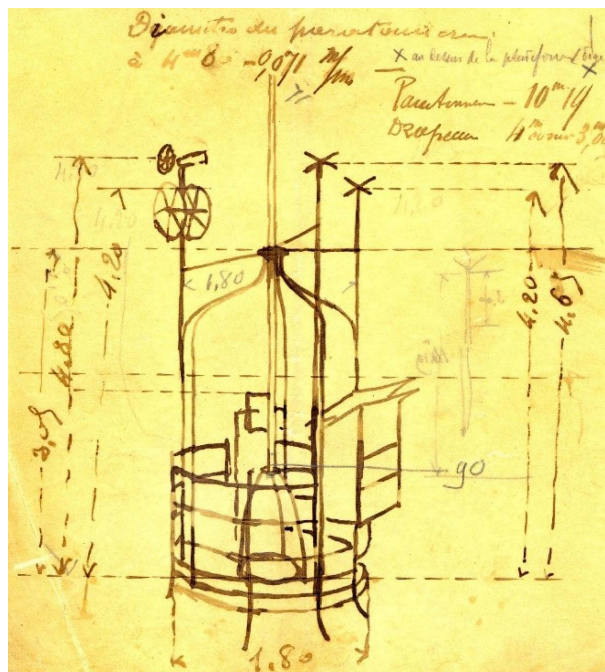 Diamètre du paratonnerre
à 4m 80 = 0,071 m/m
X au dessus de la plateforme
X
Paratonnerre - 10m 19
Drapeau 4m sur 3,00
4.20
4.20
1,80
4.20
4.80
3,05
4.20
4.65
90
1.80